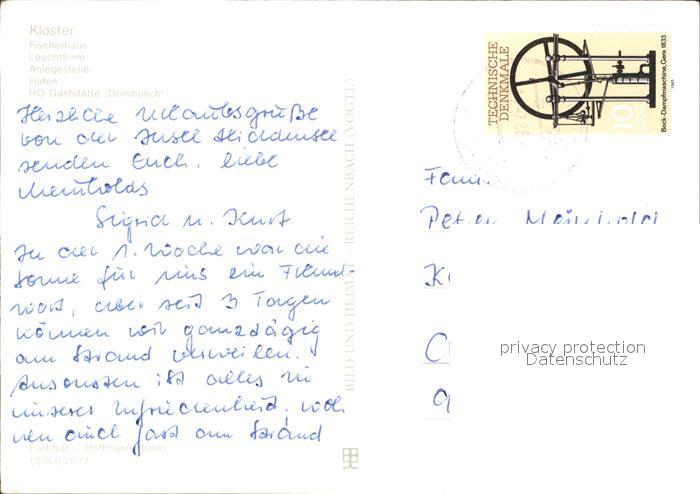 Kloster
Fischerhaus
Leuchtturm
Anlegestelle
Hafen
HO-Gaststätte „Dornbusch"
Herzliche Urlaubsgrüße
von der Insel Hiddensee
senden Euch, liebe
Meinholds
Sigrid u. Kurt
In der 1. Woche war die
Sonne für uns ein Fremd-
wort, aber seit 3 Tagen
können wir ganztägig
am Strand verweilen.
Ansonsten ist alles zu
unserer Zufriedenheit. Woh
nen auch fast am Strand
Farbfotos: Hoffmann, Berlin
DDR 0,20 M
BILD UND HEIMAT REICHENBACH (VOGTL)
TECHNISCHE
DENKMALE
10
DDR
Bock-Dampfmaschine, Gera 1833
1985
Fam
Peter Meinhold
K
privacy protection
Datenschutz